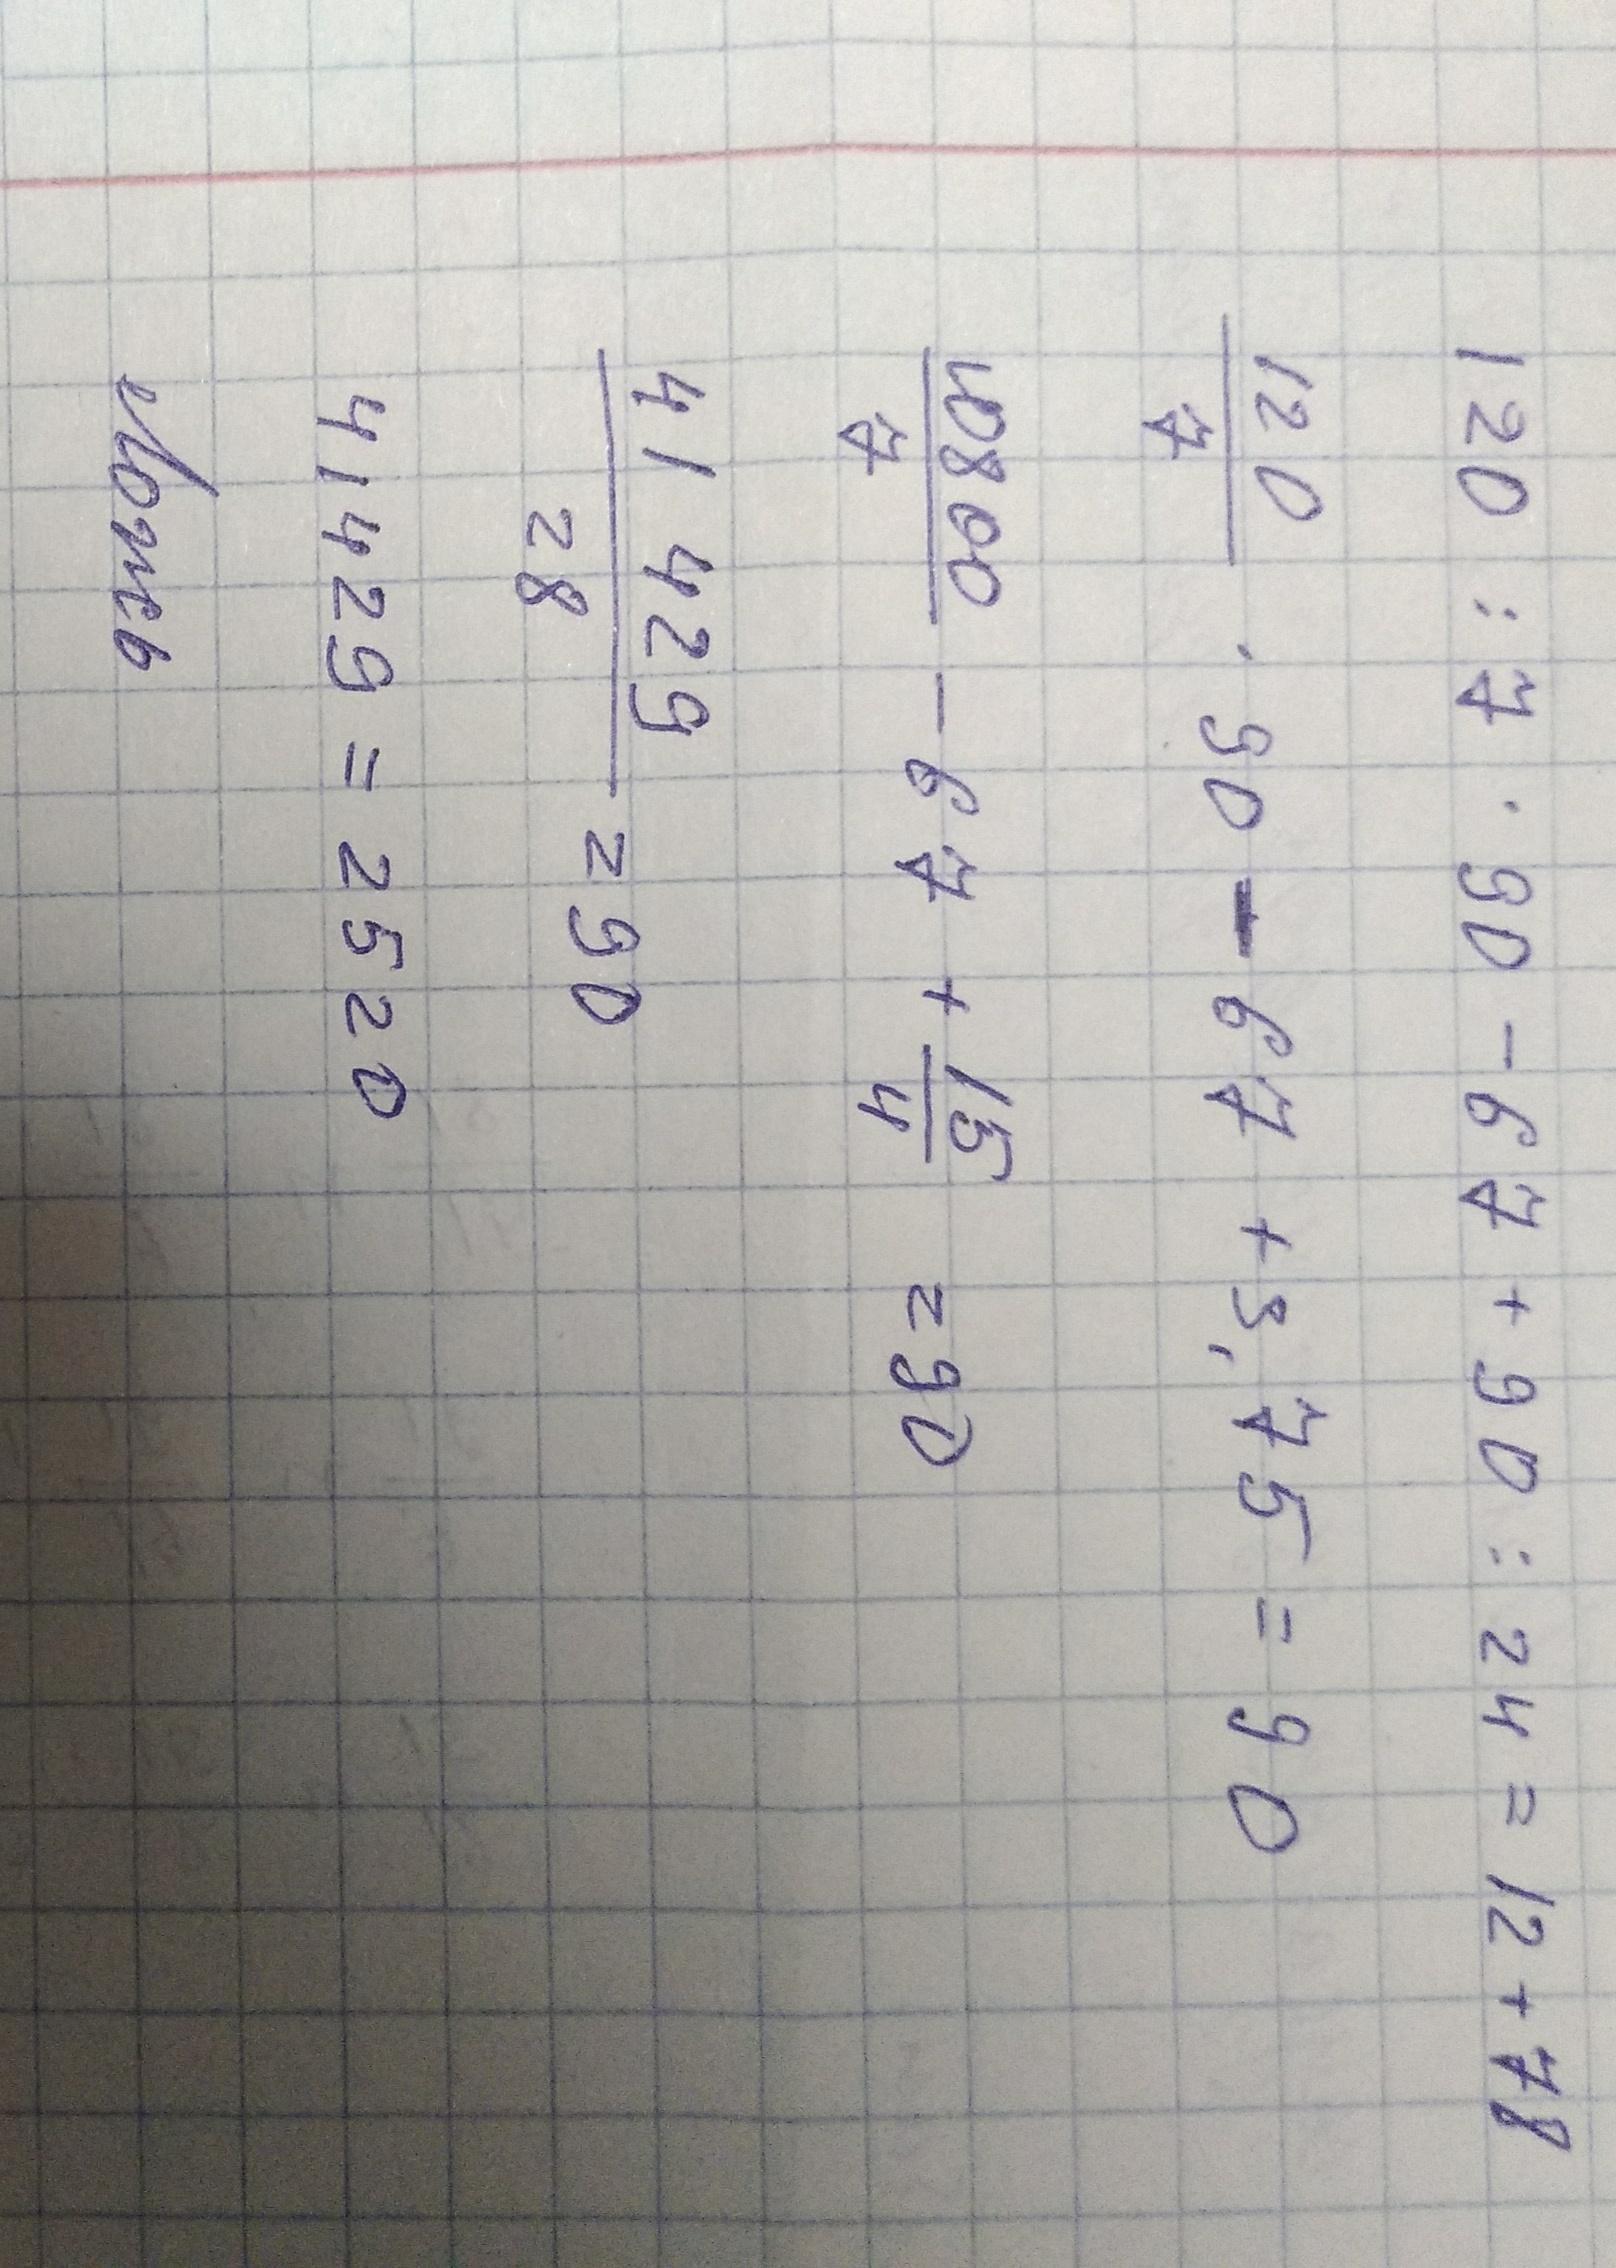 120 : 7 · 90 - 67 + 90 : 24 = 12 + 78
120/7 · 90 - 67 + 3,75 = 90
10800/7 - 67 + 15/4 = 90
41429/28 = 90
41429 = 2520
Ложь